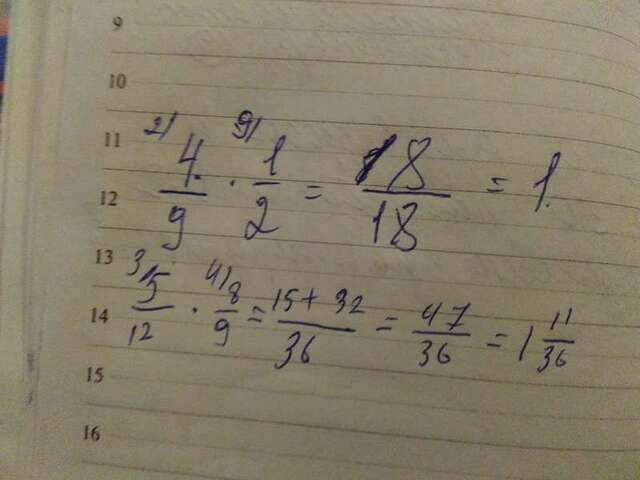 9
10
11
12
2) 4/9 · 9) 1/2 = 18/18 = 1.
13
14
3) 5/12 · 4) 8/9 = 15+32/36 = 47/36 = 1 11/36
15
16